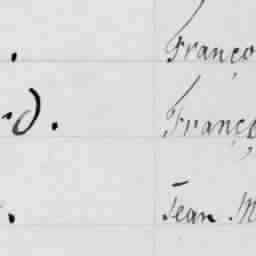 . Franço
rd. Franço
. Jean M